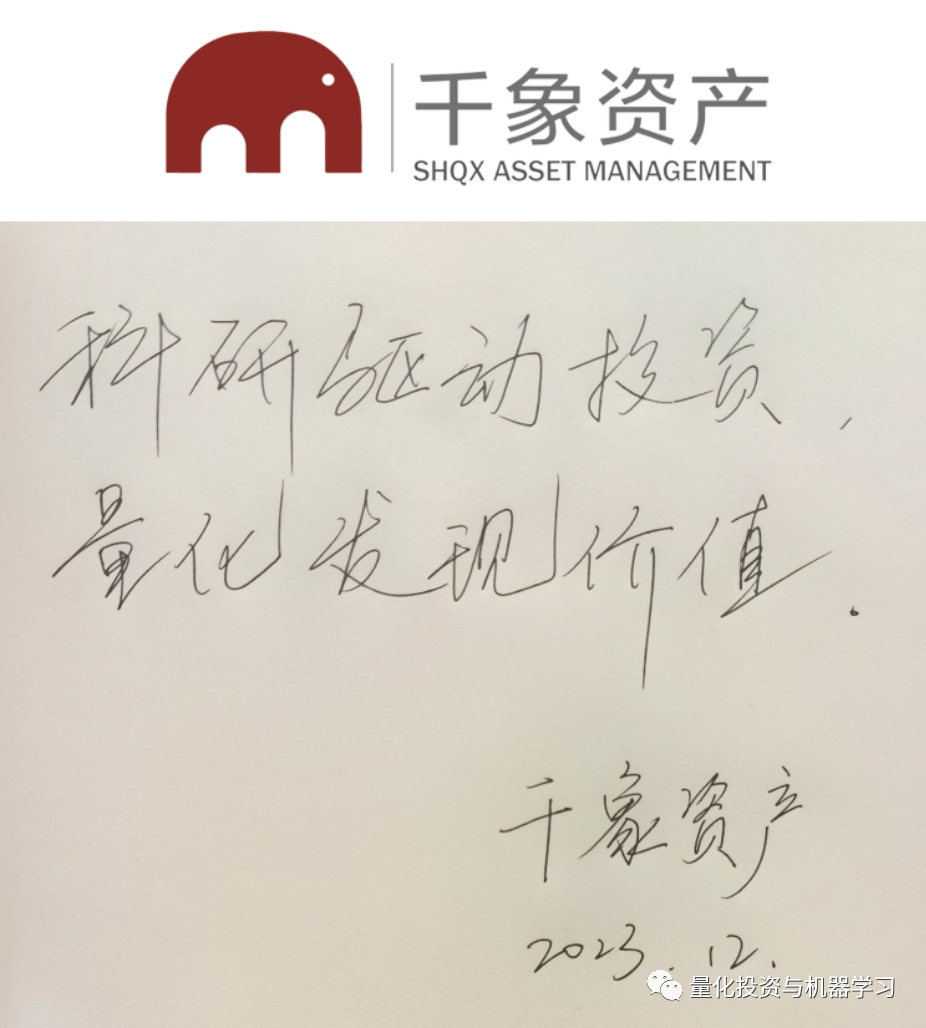 千象资产
SHQX ASSET MANAGEMENT
科研驱动投资,
量化发现价值.
千象资产
2023.12.
量化投资与机器学习